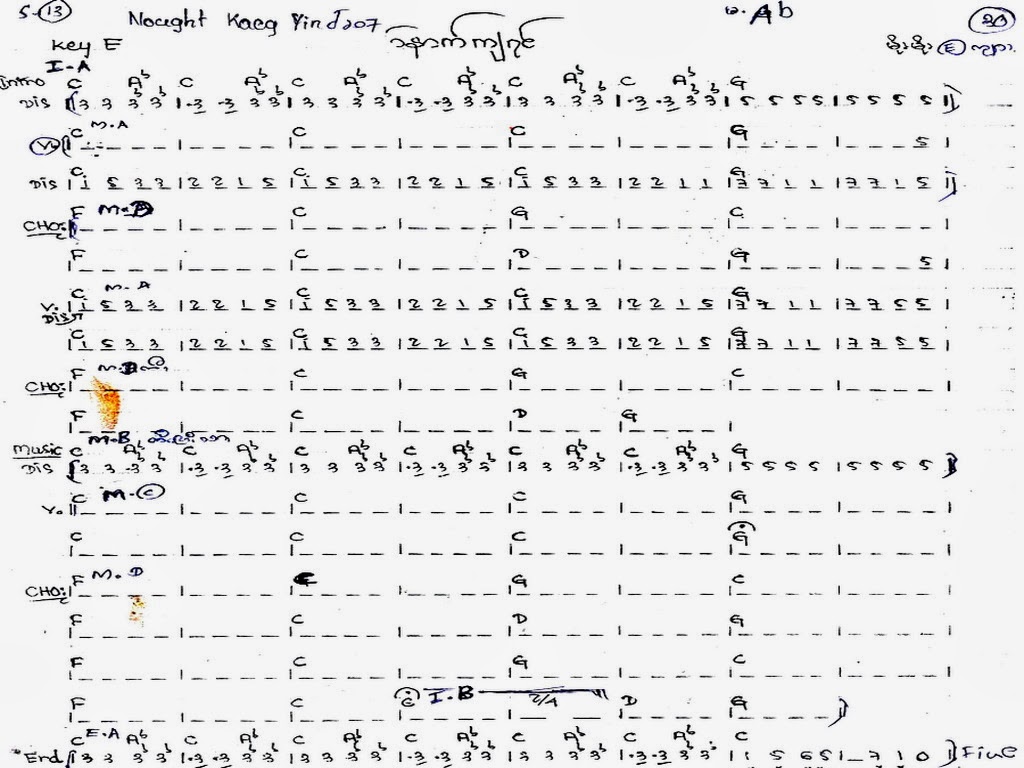 5-13 Nought Kaeg Yind207 ə. Ab 20
Key E နောက်ကျရင် မိုးမိုး E
I-A
Intro C A♭ C A♭ C A♭ C A♭ C A♭ C A♭ G
Dis 3 3 3 3 | ·3 ·3 3 3 | 3 3 3 3 | ·3 ·3 3 3 | 3 3 3 3 | ·3 ·3 3 3 | 5 5 5 5 | 5 5 5 5
M.A
Vo C C C G 5
C C C G
Dis 1 5 3 3 | 2 2 1 5 | 1 5 3 3 | 2 2 1 5 | 1 5 3 3 | 2 2 1 1 | 7 7 1 1 | 7 7 1 5
CHO: F M.D C G C
F C D G 5
C M.A C C G
V. Dis 1 5 3 3 | 2 2 1 5 | 1 5 3 3 | 2 2 1 5 | 1 5 3 3 | 2 2 1 5 | 7 7 1 1 | 7 7 5 5
C C C G
1 5 3 3 | 2 2 1 5 | 1 5 3 3 | 2 2 1 5 | 1 5 3 3 | 2 2 1 5 | 7 7 1 1 | 7 7 5 5
CHO: F C G C
F C D G
M.B
Music C A♭ C A♭ C A♭ C A♭ C A♭ C A♭ G
Dis 3 3 3 3 | ·3 ·3 3 3 | 3 3 3 3 | ·3 ·3 3 3 | 3 3 3 3 | ·3 ·3 3 3 | 5 5 5 5 | 5 5 5 5
V. C M.C C C G
C C C G
CHO: F M.D C G C
F C D G
F C G C
F C C I.B 2/4 D G
C E.A A♭ C A♭ C A♭ C A♭ C A♭ C A♭ C
End 3 3 3 3 | ·3 ·3 3 3 | 3 3 3 3 | ·3 ·3 3 3 | 3 3 3 3 | ·3 ·3 3 3 | 1 5 6 5 | 7 1 0 Fine